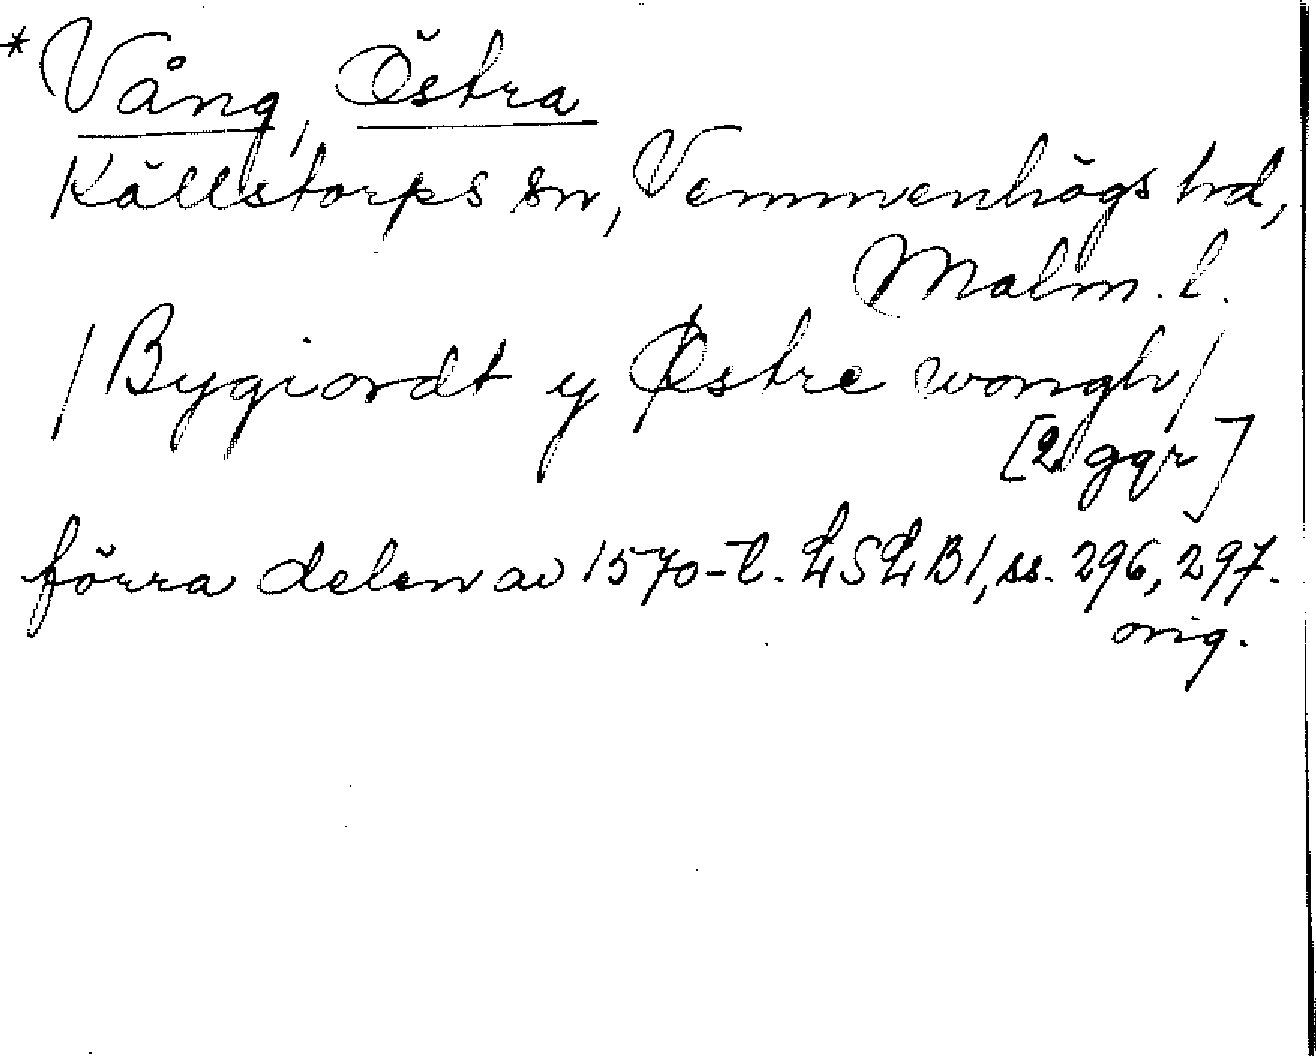 *Vång, Östra
Källstorps sn, Vemmenhögs hd,
Malm. l.
/Bygiordt y Østre wongh/
[2 ggr]
förra delen av 1570-t. LSLB1, ss. 296, 297.
orig.